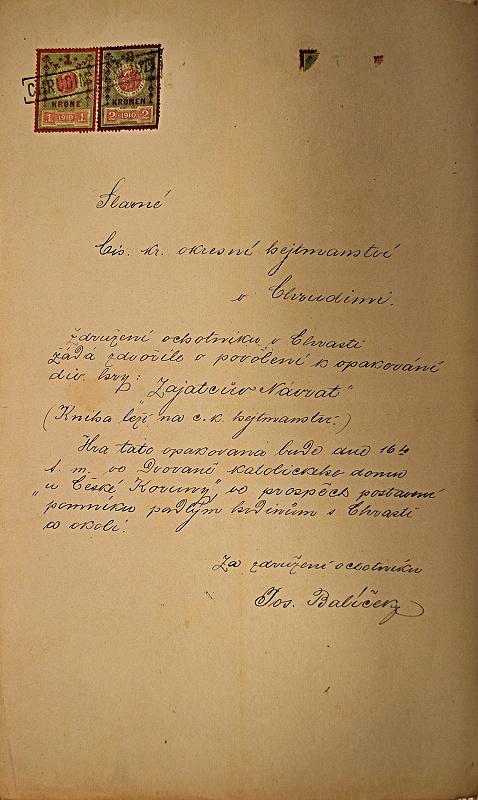 1
2
CHRUDIM
KRONE
KRONEN
1 1910 1
2 1910 2
Slavné
Cis. kr. okresní hejtmanství
v Chrudimi.
Združení ochotníků v Chrasti
žádá zdvořile o povolení k opakování
div. hry: "Zajatcův Návrat"
(Kniha leží na c. k. hejtmanství.)
Hra tato opakovaná bude dne 16 h
t. m. ve Dvoraně katolického domu
„u České Koruny" ve prospěch postavení
pomníku padlým hrdinům z Chrasti
a okolí.
Za združení ochotníků
Jos. Balíček